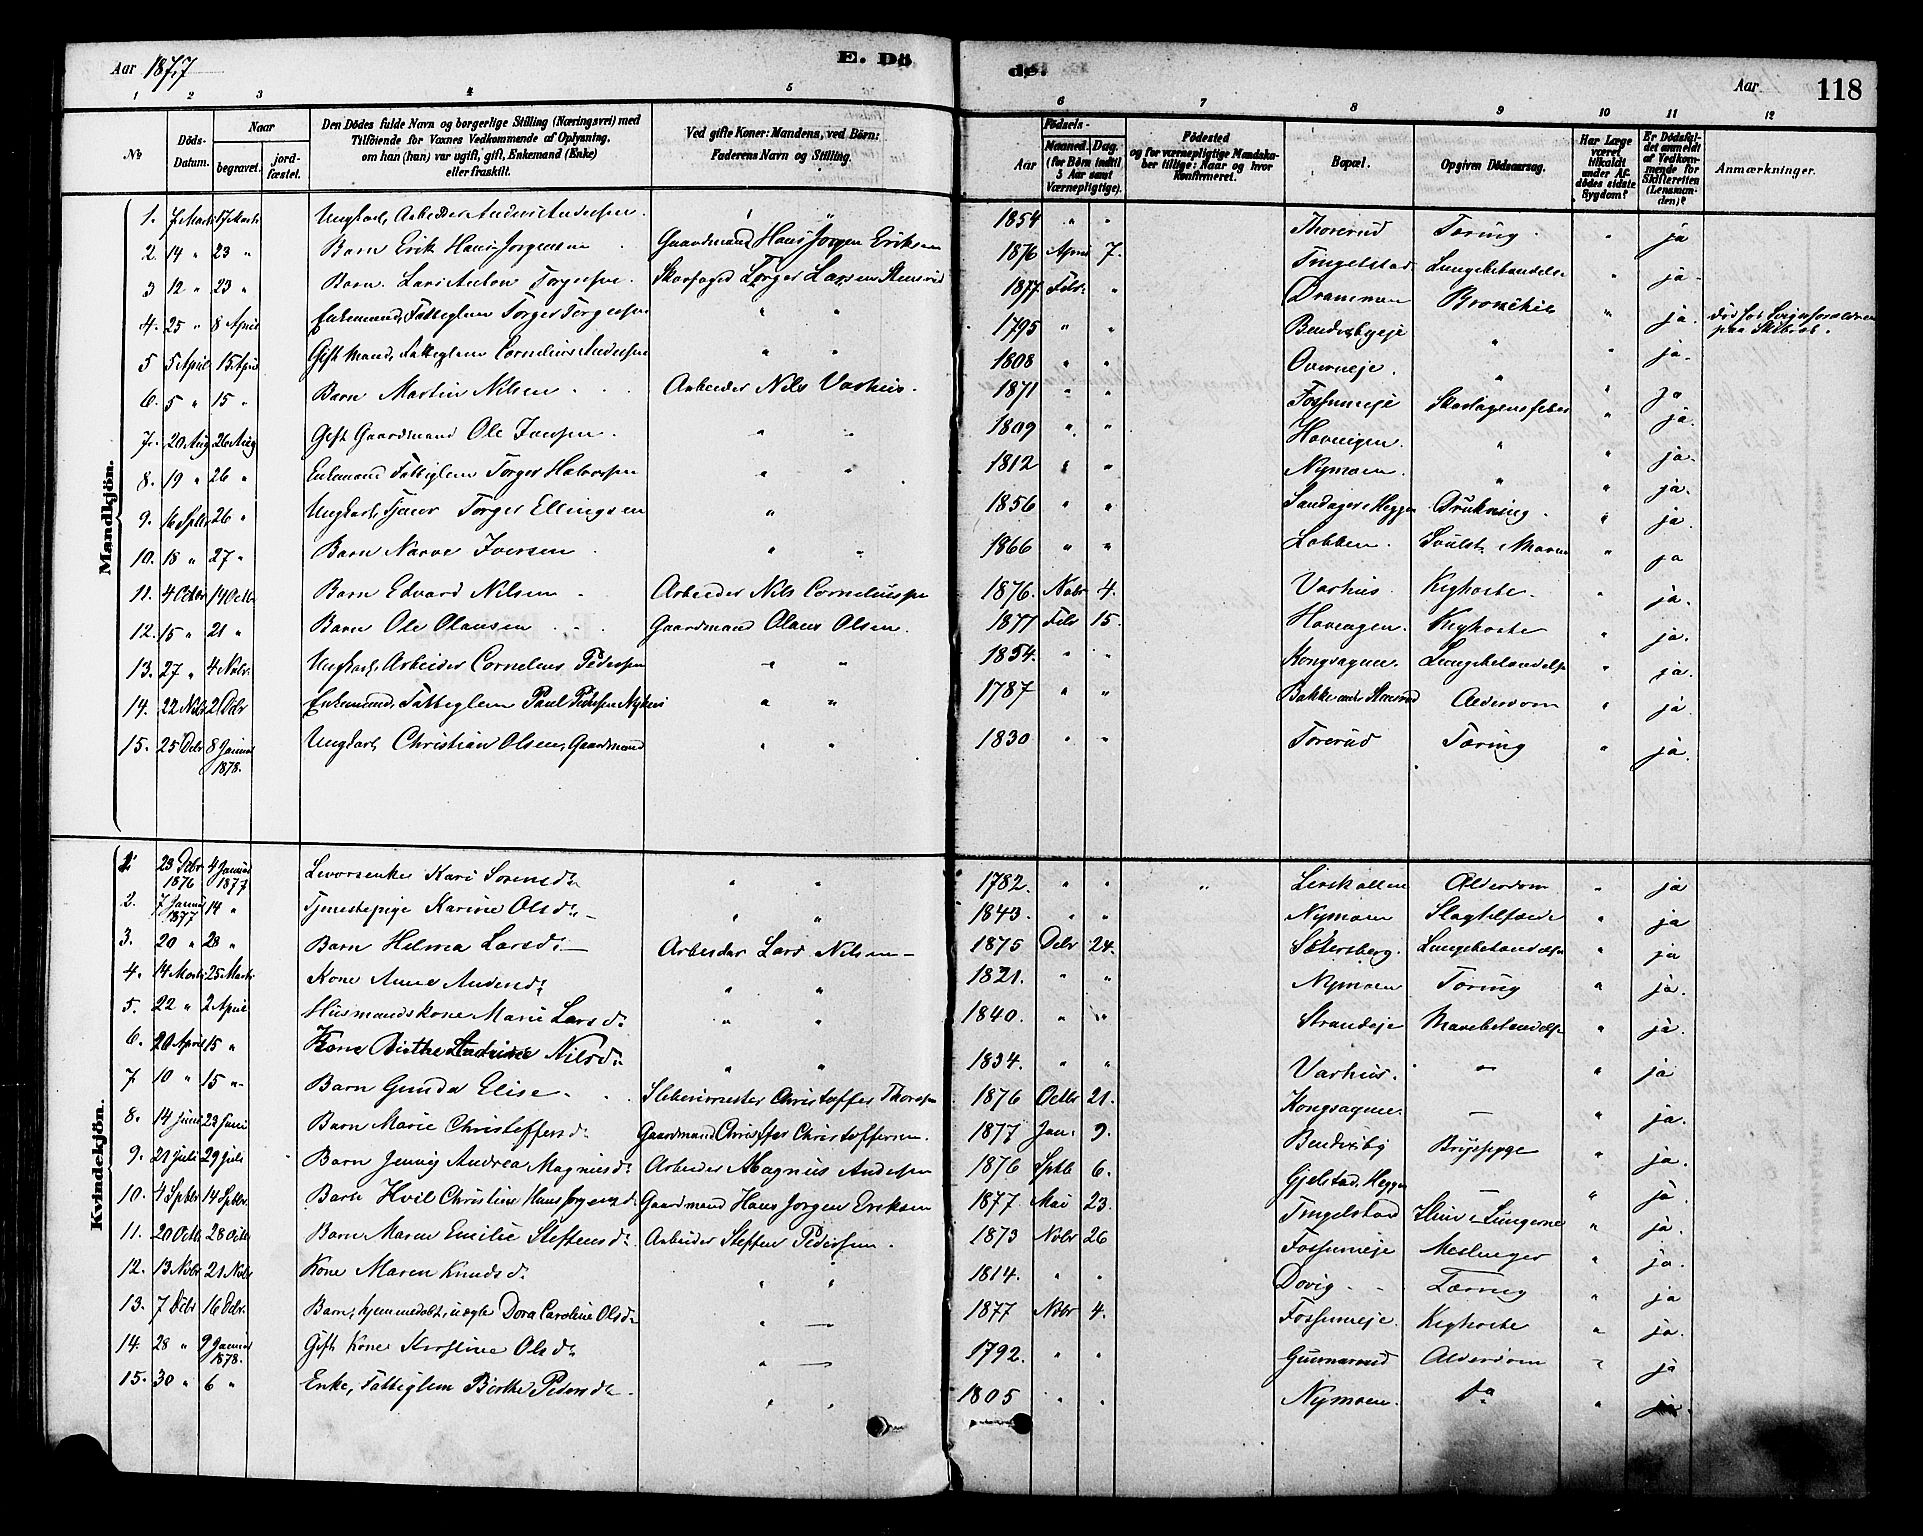 Aar 1877
E. Dö
de.
Aar
118
1 2 3 4 5 6 7 8 9 10 11 12
No
Döds-Datum.
Naar
begravet.
jord-fæstet.
Den Dödes fulde Navn og borgerlige Stilling (Næringsvei) med
Tilföiende for Voxnes Vedkommende af Oplysning,
om han (hun) var ugift, gift, Enkemand (Enke)
eller fraskilt.
Ved gifte Koner: Mandens, ved Börn:
Faderens Navn og Stilling.
Födsels-
Aar
Maaned. Dag.
(for Börn indtil
5 Aar samt
Værnepligtige).
Födested
og for værnepligtige Mandska-
ber tillige: Naar og hvor
Konfirmeret.
Bopæl.
Opgiven Dödsaarsag.
Har Læge
været
tilkaldt
under Af-
dödes sidste
Sygdom?
Er Dödsfal-
det anmeldt
af Vedkom-
mende for
Skifteretten
(Lensman-
den)?
Anmærkninger.
Mandkjön.
1. 7 Marts 17 Marts Ungkarl, Arbeider Anders Andersen. " " 1854 " " Thorerud Tæring. " ja
2. 14 " 23 " Barn Erik Hans Jorgensen Gaardmand Hans Jorgen Eriksen 1876 April 7. Tingelstad Lungebetændelse " ja
3 12 " 23 " Barn Lars Anton Torgersen. Skovfoged Torger Larsen Stensrud 1877 Febr " Drammen Bronchit " ja. død hos Svigerforældrene paa Skibs
4. 25 " 8 April Enkemand, Fattiglem Torger Torgersen " " 1795 " " Bendixbyeje " " ja.
5 5 April 15 April Gift Mand, Fattiglem Cornelius Andersen " " 1808 " " Overneje. " " ja
6. 5 " 15 " Barn Martin Nilsen Arbeider Nils Varhus. 1871 " " Fossumeje Skarlagensfeber " ja.
7. 20 Aug 26 Aug Gift Gaardmand Ole Iversen. " " 1809 " " Hovengen. " " ja.
8. 19 " 26 " Enkemand Fattiglem Torger Halvorsen " " 1812 " " Nymoen. " " ja.
9. 16 Sptbr 26 " Ungkarl, Tjener Torger Ellingsen " 1856 " " Sandager Heggen Drukning. " ja.
10. 18 " 27 " Barn Narve Iversen " " 1866 " " Lobben. Svulst i Maven " ja
11. 4 Octbr 14 Octbr Barn Edvard Nilsen Arbeider Nils Corneliussen 1876. Nobr 4. Varhus. Kighoste. " ja.
12. 15 " 21 " Barn Ole Olausen Gaardmand Olaus Olsen. 1877 Febr 15. Hovengen. Kighoste " ja.
13. 27 " 4 Nobr. Ungkarl, Arbeider Cornelius Pedersen " " 1854. " " Kongsagnen. Lungebetændelse " ja.
14. 22 Nobr 2 Debr Enkemand, Fattiglem Paul Pedersen " " 1787 " " Bakke under Stensrud Alderdom " ja
15. 25 Debr 8 Januar 1878. Ungkarl Christian Olsen, Gaardmand " " 1830 " " Torerud Tæring " ja.
Kvindekjön.
1 23 Debr 1876 4 Januar 1877 Levorsenke Kari Sorensdr " " 1782. " " " Lerskallen Alderdom " ja
2. 7 Januar 1877 14 " Tjenestepige Karine Olsdr " " 1843. " " Nymoen Slagtilfælde " ja
3. 20 " 28 " Barn Helma Larsdr Arbeider Lars Nilsen 1875 Debr 24. Sætersberg. Lungebetændelse " ja
4. 14 Marts 25 Marts Kone Anne Andersdr " " 1821. " " Nymoen Tæring " ja.
5. 22 " 2 April Husmandskone Marie Larsdr " " 1840. " " Strandeje Mavebetændelse " ja.
6. 20 April 15 " Kone Birthe Andrine Nilsdr " " 1834. " " Varhus. " " ja
7. 10 " 15 " Barn Gunda Elise. Slibemester Christoffer Thorsen 1876 Octbr 21. Kongsagnen. — " ja.
8. 14 Juni 23 Juni Barn Marie Christoffersdr Gaardmand Christoffer Christoffersen. 1877 Jan. 9. Bendixby Brystsyge " ja.
9. 21 Juli 29 Juli Barn Jenny Andrea Magnusdr Arbeider Magnus Andersen 1876 Sptb 6. Gjelstad Heggen — " ja
10. 4 Sptbr 14 Sptbr. Barn Hvil Christine Hans Jorgensdr Gaardmand Hans Jorgen Eriksen 1877 Mai 23. Tingelstad Sliim i Lungerne " ja.
11. 20 Octb 28 Octb Barn Maren Emilie Steffensdr Arbeider Steffen Pedersen. 1873 Nobr 26 Fossumeje Meslinger " ja.
12. 13 Nobr 21 Nobr Kone Maren Knudsdr " " 1814. " " Dovig Tæring " ja
13. 7 Debr 16 Debr. Barn, hjemmedøbt, uægte Dora Caroline Olsdr " — 1877 Nobr 4. Fossumeje. Kighoste " ja.
14. 28 " 9 Januar 1878. Gift Kone Kirstine Olsdr " — 1792. " " Gunnarsrud Alderdom " ja
15. 30 " 6 " Enke, Fattiglem Birthe Pedersdr. " " 1805 " " Nymoen. do " ja.